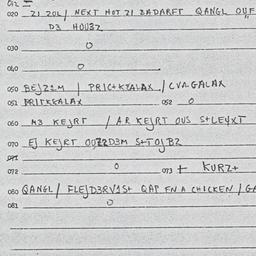 012
020 21 20L / NEXT HOT 21 BADARFT QANGL OUF
D3 HOUBZ
030 0
040 0
050 BEJZ1M | PRICTKYALAX / CVAGALAX
051 PRITKKALAX 052 0
060 M3 KEJRT / AR KEJRT OUS S+LEYXT
070 EJ KEJRT OUZ2D3M S+TOJBZ
071
072 0 073 + KURZ+
080 QANGL / FLEJD3RV1S+ QAP FNA CHICKEN /
081 0